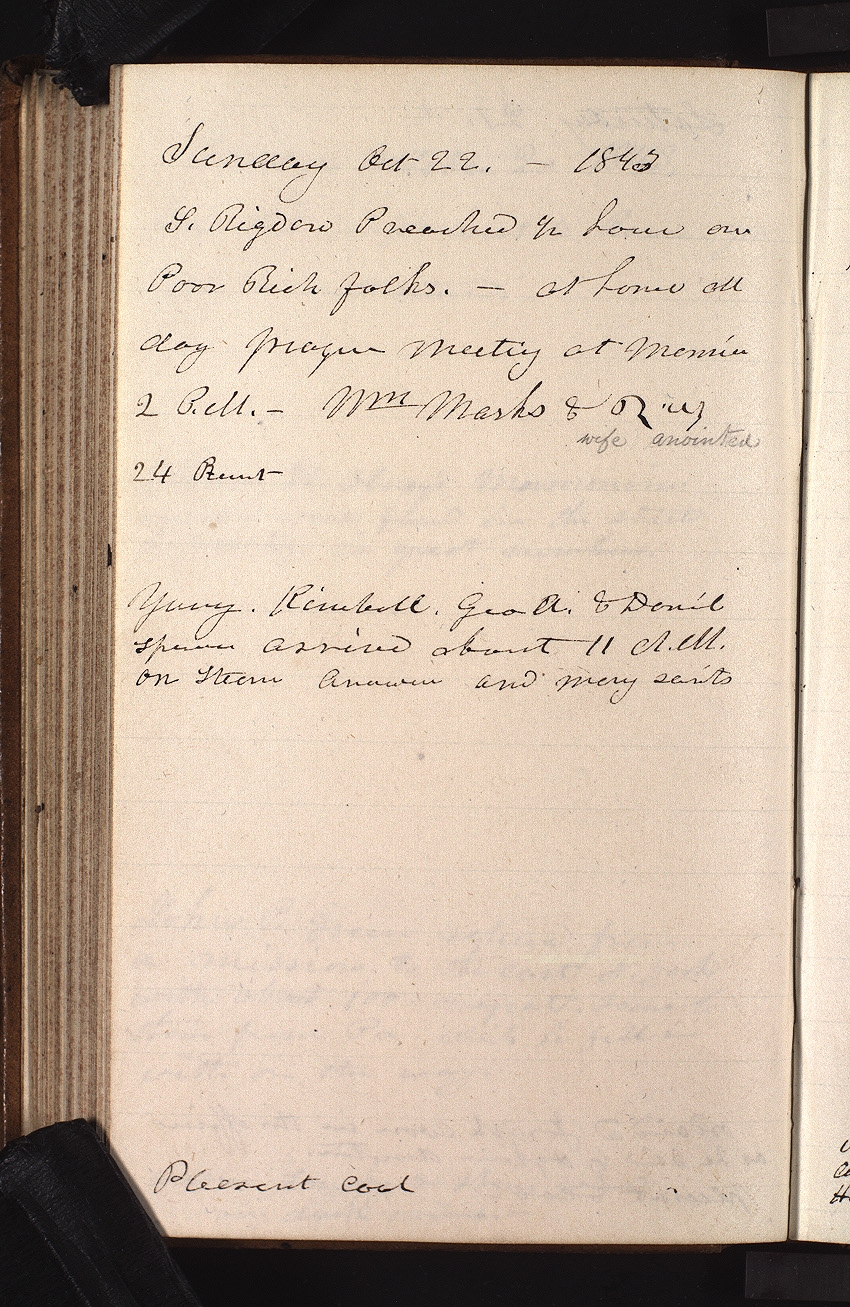 Sunday Oct 22. — 1843
S. Rigdon Preached ½ hour on
Poor Rich folks. — at home all
day prayer meeting at Mansion
2 P.M. — Wm Marks &
wife anointed
24 Present
Young. Kimball. Geo A. & Daniel
Spencer arrived about 11 A.M.
on Steam Anawan and many saints
Pleasent cool